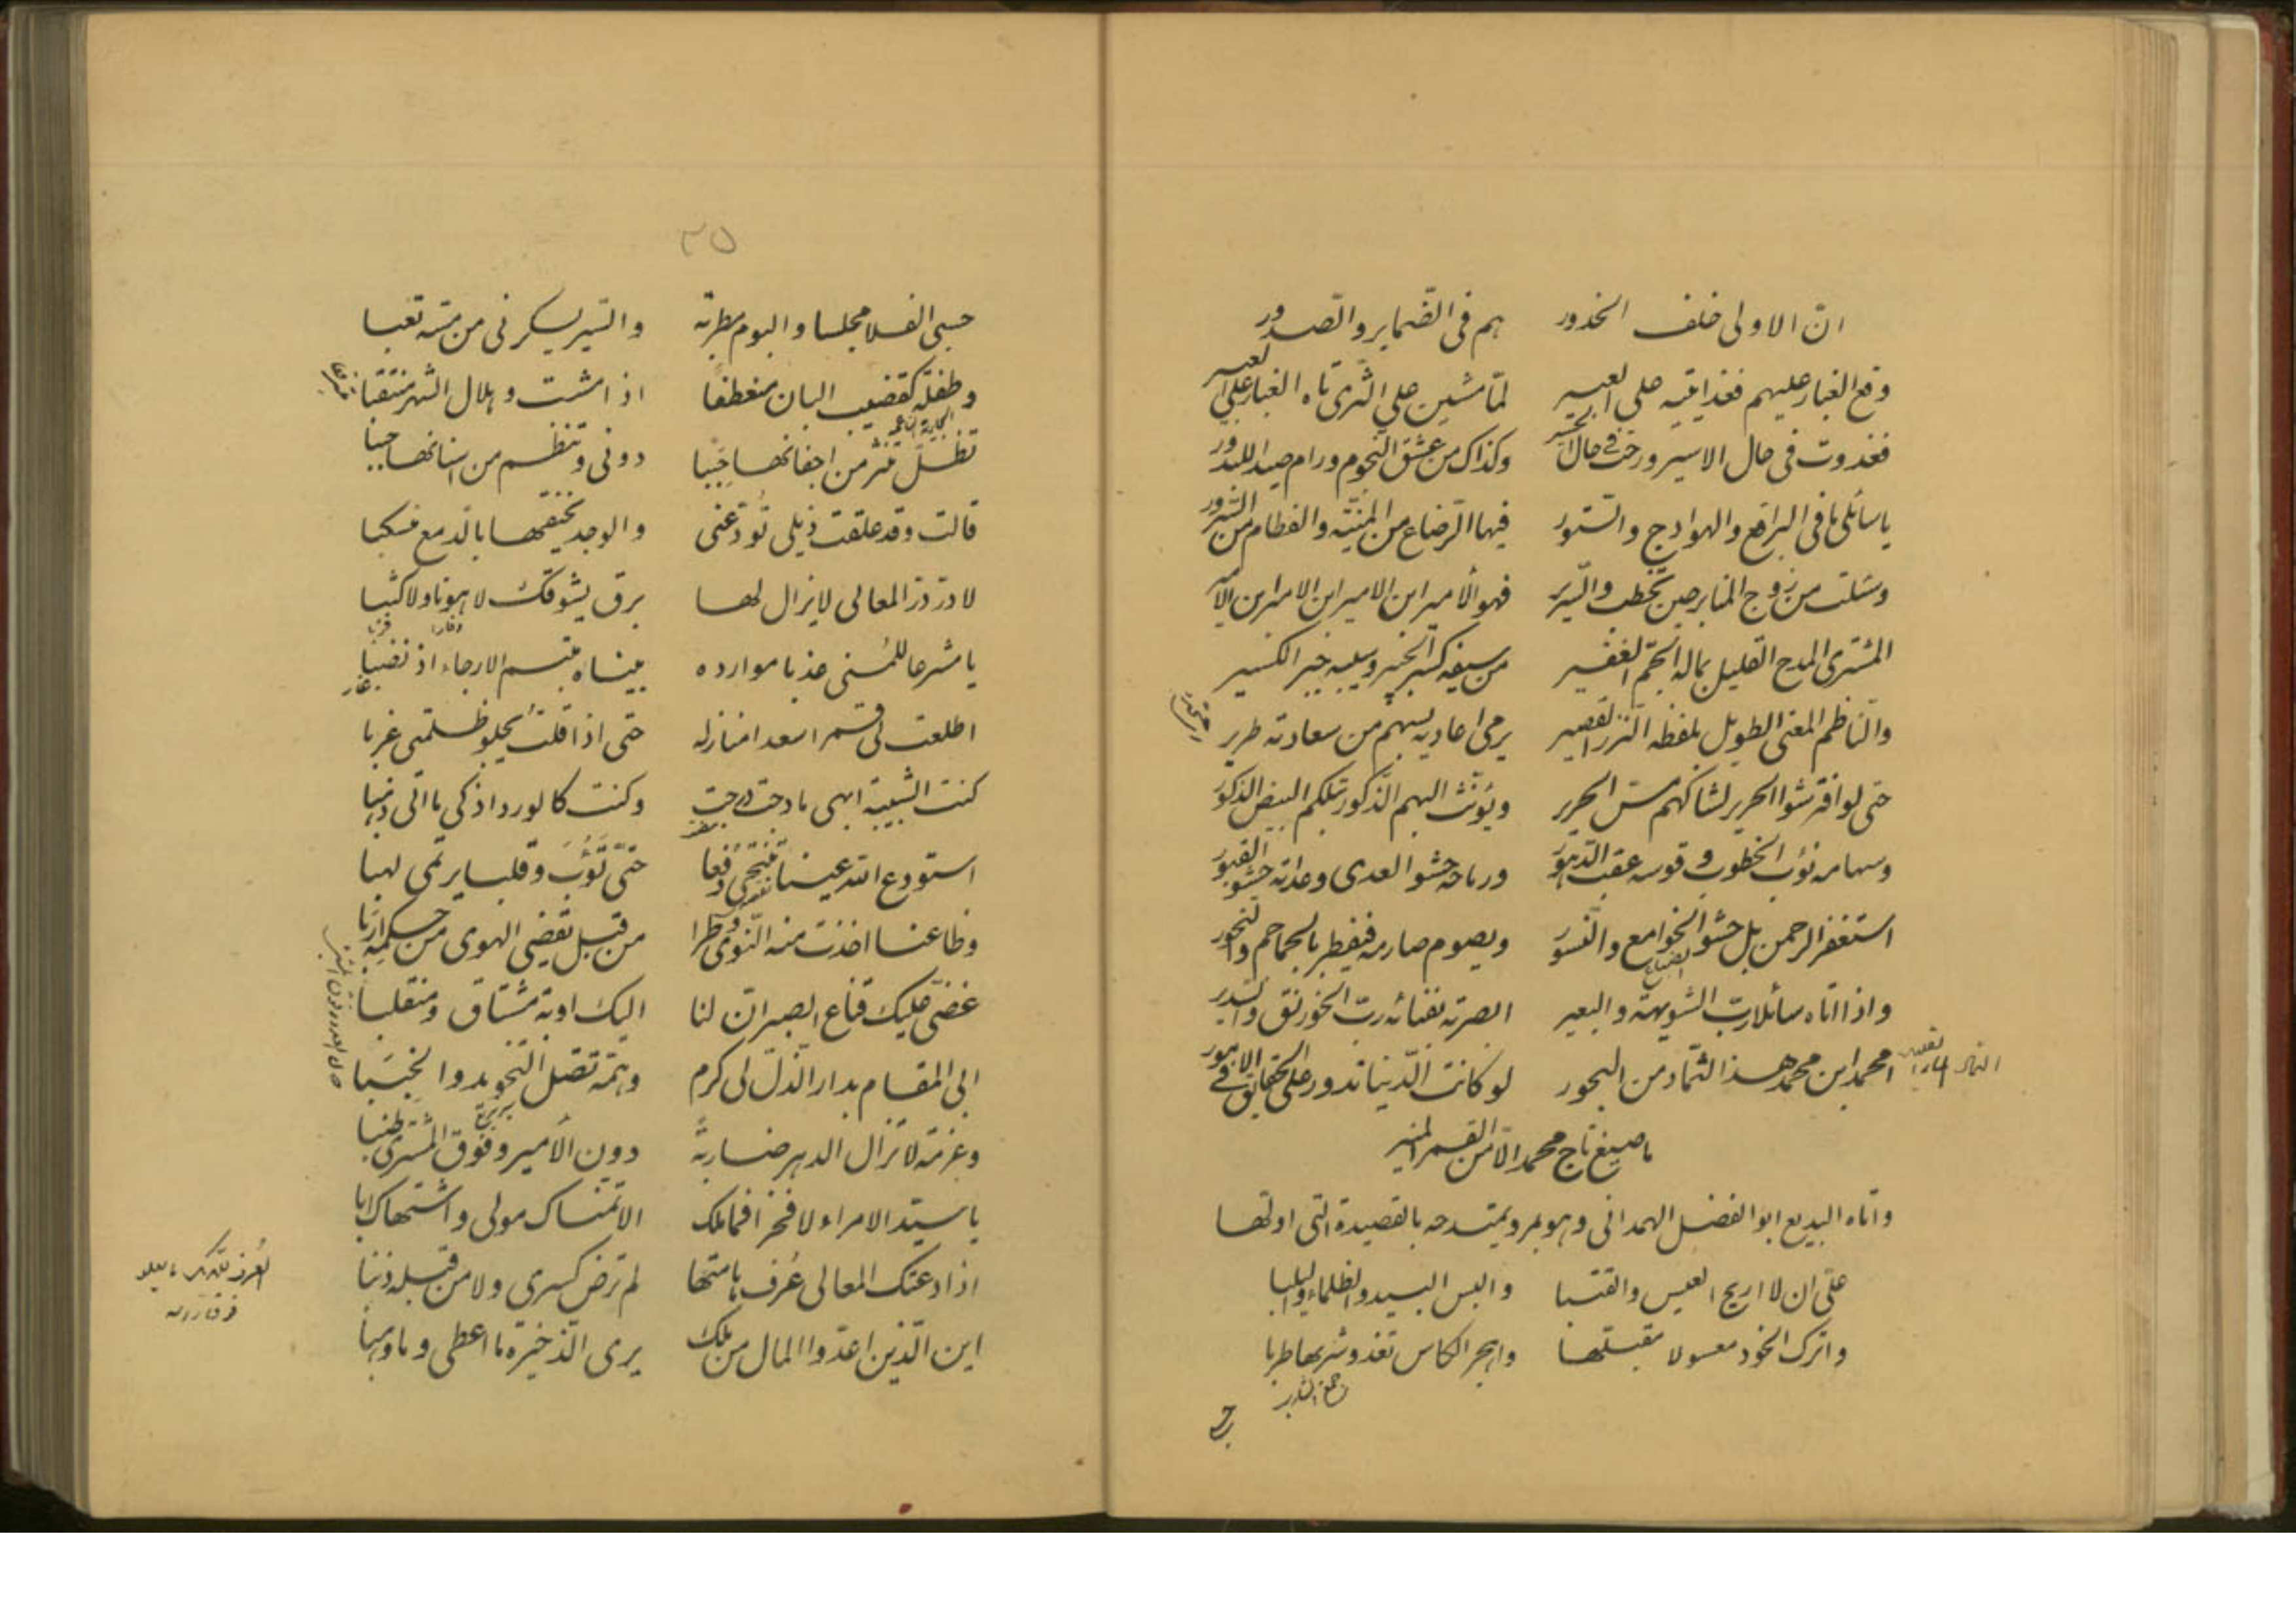 انّ الاولى خلف الخدور هم فى الضّماير والصّدور
وقع الغبار عليهم فغدا يتيه على العبير لمّا مشين على الثّرى تاه الغبار على العبير
فغدوت فى حال الاسير ورحت فى حال الحسير وكذاك من عشق النّجوم ورام صيدا للبدور
يا سائلى ما فى البراقع والهوادج والستور فيها الرّضاع من المنيّة والفطام من السّرور
وسئلت من زوج المنابر حين تخطب والسّرير فهو الأمير ابن الامير ابن الامير ابن الأمير
المشترى المدح القليل بماله الجمّ الغفير من سيفه كسر الجبير وسيبه جبر الكسير
والنّاظم المعنى الطويل بلفظه النّزر القصير يرمى اعاديه بسهم من سعادته طرير
حتى لو افترشوا الحرير لشاكهم مسّ الحرير ويؤنّث البهم الذّكور بتلكم البيض الذكور
وسهامه نوب الخطوب وقوسه عقب الدّهور ورماحه حشو العدى وعداته حشو القبور
استغفر الرحمن بل حشو الخوامع والنّسور ويصوم صارمه فيفطر بالجماجم والنّحور
واذا اتاه سائلا ربّ الشويهة والبعير ابصرته بفنائه ربّ الخورنق والسّدير
امحمد ابن محمد هذا الثّماد من البحور لو كانت الدّنيا تدور على الحقايق فى الامور
ما صيغ تاج محمد الّا من القمر المنير
واتاه البديع ابو الفضل الهمدانى وهو بمرو يمتدحه بالقصيدة التى اوّلها
علىّ ان لا اريح العيس والقتبا والبس البيد والظلماء واليلبا
واترك الخود معسولا مقبّلها واهجر الكاس تغذو شربها طربا
٣٥
حسبى الفلا مجلسا والبوم مطربة والسّير يسكرنى من مسّه تعبا
وطفلة كقضيب البان منعطفا اذا مشت وهلال الشهر منتقبا
الجارية الناعمة
تظلّ تنثر من اجفانها حببا دونى وتنظم من اسنانها حببا
قالت وقد علقت ذيلى تودّعنى والوجد يخنقها بالدّمع منسكبا
لا درّ درّ المعالى لا يزال لها برق يشوقك لا هونا ولا كثبا
يا مشرعا للمنى عذبا موارده بيناه مبتسم الارجاء اذ نضبا
اطلعت لى قمرا سعدا منازله حتى اذا قلت يجلو ظلمتى غربا
كنت الشّبيبة ابهى ما دجت درجت وكنت كالورد اذكى ما اتى ذهبا
استودع الله عينا تنتحى دفعا حتّى تؤب وقلبا يرتمى لهبا
وظاعنا اخذت منه النّوى وطرا من قبل تقضى الهوى من حكمه اربا
غضّى عليك قناع الصبر انّ لنا اليك اوبة مشتاق ومنقلبا
ابى المقام بدار الذّلّ لى كرم وهمّة تصل التّخويد والخببا
وعزمة لا تزال الدهر ضاربة دون الأمير وفوق المشترى طنبا
يا سيّد الامراء لا فخرا فما ملك الا تمنّاك مولى واشتهاك ابا
اذا دعتك المعالى عرف هامتها لم ترض كسرى ولا من قبله ذنبا
اين الّذين اعدّوا المال من ملك يرى الذّخيرة ما اعطى وما وهبا